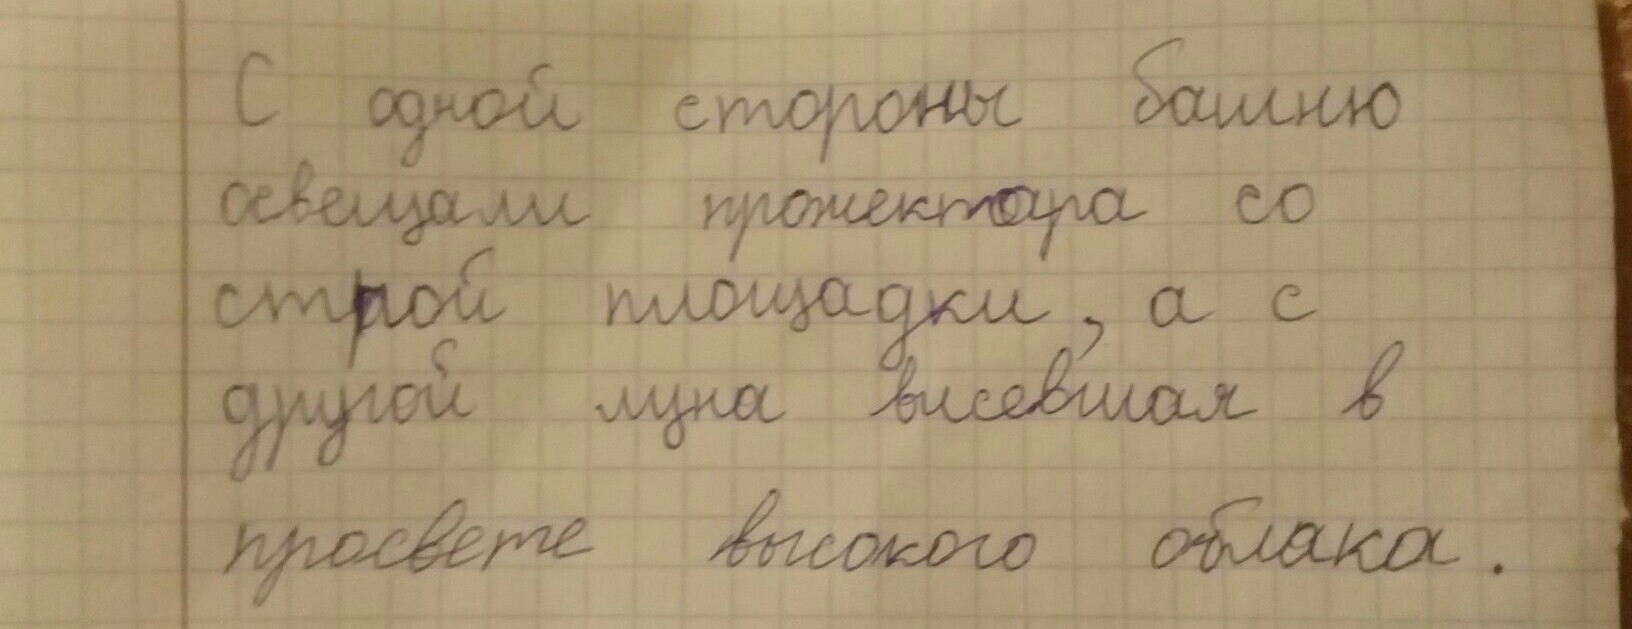 С одной стороны башню
освещали прожектора со
строй площадки, а с
другой луна висевшая в
просвете высокого облака.